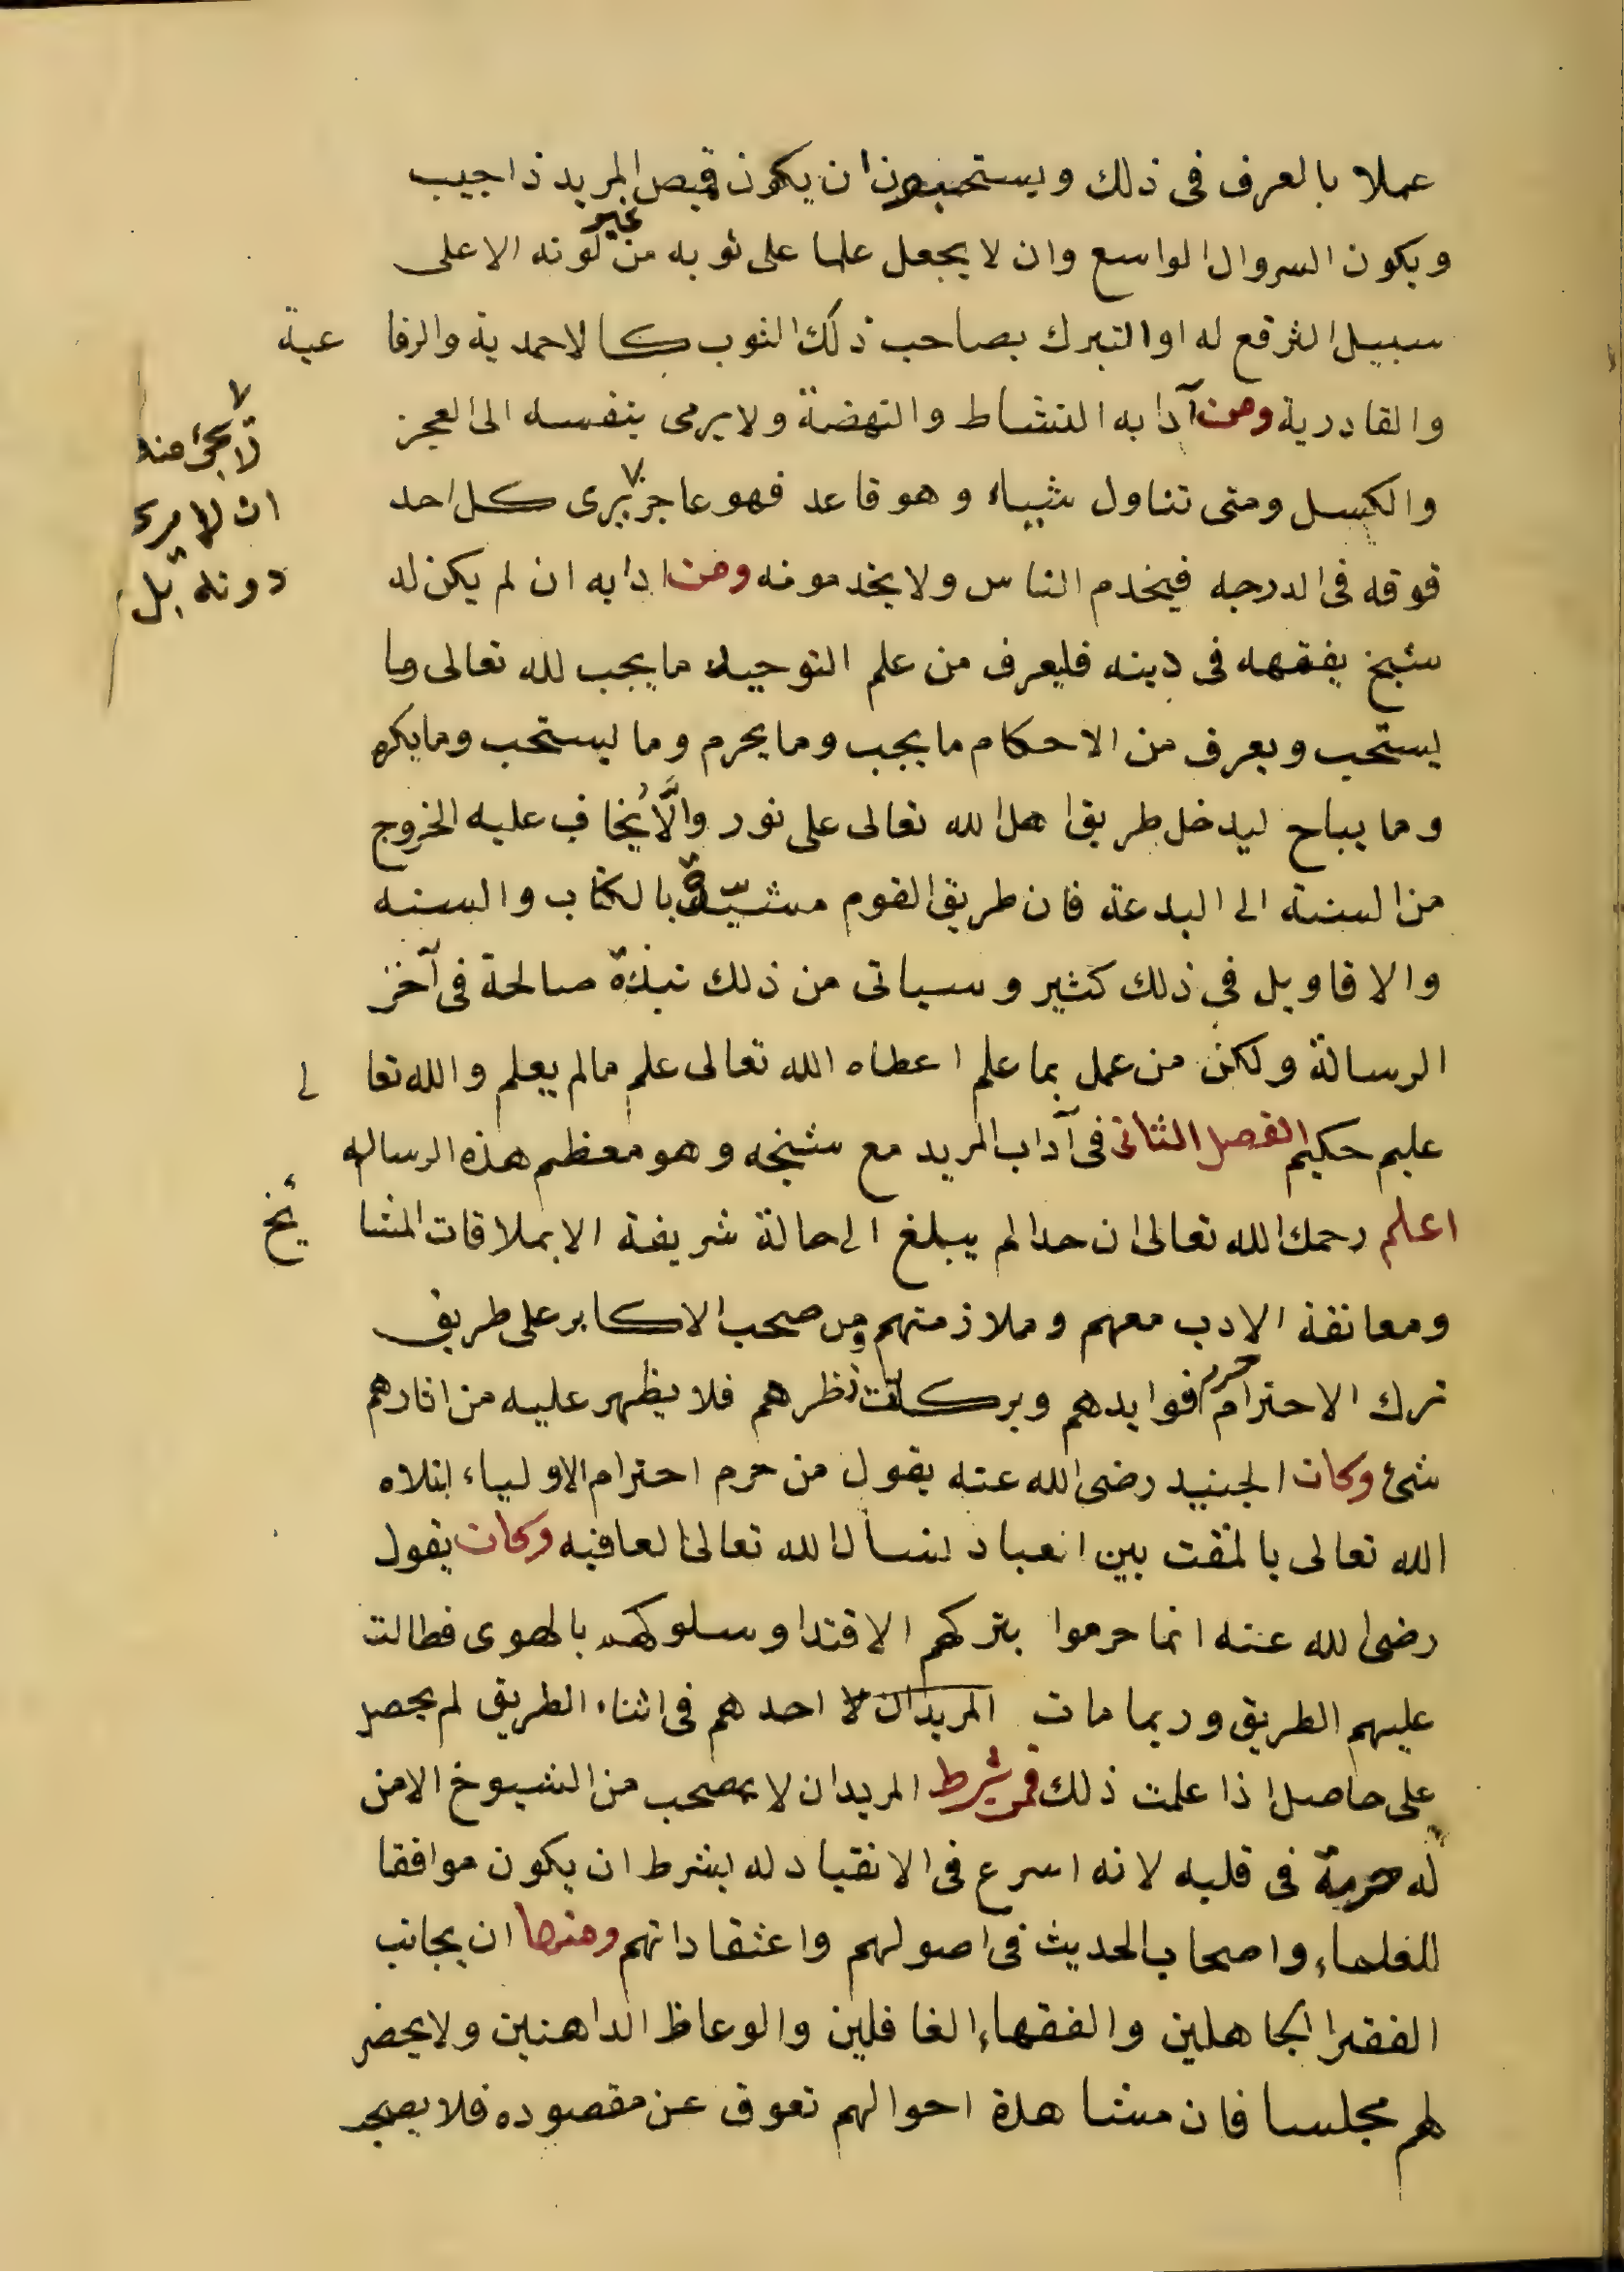 عملا بالعرف فى ذلك ويستحبون ان يكون قميص المريد ذا جيب
ويكون السروال الواسع وان لا يجعل علما على ثوبه من غير لونه الا على
سبيل الترقع له او التبرك بصاحب ذلك الثوب كالاحمدية والرفاعية
والقادرية ومن آدابه النشاط والنهضة ولا يرمى بنفسه الى العجز
والكسل ومتى تناول شيياء وهو قاعد فهو عاجز يرى كل احد
لا يجئ منه
ان لا يرى
دونه بل
فوقه فى الدرجه فيخدم الناس ولا يخدمونه ومن ادابه ان لم يكن له
شيخ يفقهه فى دينه فليعرف من علم التوحيد ما يجب لله تعالى وما
يستحب ويعرف من الاحكام ما يجب وما يحرم وما يستحب وما يكره
وما يباح ليدخل طريق اهل الله تعالى على نور والَّا يُخاف عليه الخروج
من السنة الى البدعة فان طريق القوم مشيّدة بالكتاب والسنه
والاقاويل فى ذلك كثير وسياتى من ذلك نبذة صالحة فى آخر
الرسالة ولكن من عمل بما علم اعطاه الله تعالى علم مالم يعلم والله تعالى
عليم حكيم الفصل الثانى فى آداب المريد مع شيخه وهو معظم هذه الرساله
اعلم رحمك الله تعالى ان حدا لم يبلغ الى حالة شريفة الا بملاقات المشائخ
ومعانقة الادب معهم وملازمتهم ومن صحب الاكابر على طريق
ترك الاحترام حرم فوايدهم وبركات نظرهم فلا يظهر عليه من اثارهم
شئ وكان الجنيد رضى الله عنه يقول من حرم احترام الاولياء ابتلاه
الله تعالى بالمقت بين العباد نسأل الله تعالى العافيه وكان يقول
رضى الله عنه انما حرموا بتركهم الاقتدا وسلوكهم بالهوى فطالت
عليهم الطريق وربما مات المريدان لا احدهم فى اثناء الطريق لم يحصل
على حاصل اذا علمت ذلك فمن شرط المريد ان لا يصحب من الشيوخ الا من
له حرمة فى قلبه لانه اسرع فى الانقياد له بشرط ان يكون موافقا
للعلماء واصحاب الحديث فى اصولهم واعتقاداتهم ومنها ان يجانب
الفقرا الجاهلين والفقهاء الغافلين والوعاظ الداهنين ولا يحضر
لهم مجلسا فان مشاهدة احوالهم تعوق عن مقصوده فلا يصحب